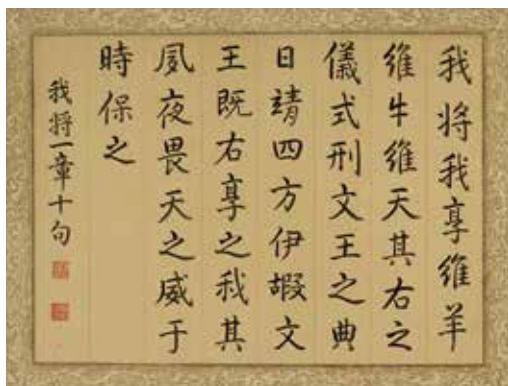 我将我享維羊
維牛維天其右之
儀式刑文王之典
日靖四方伊嘏文
王既右享之我其
夙夜畏天之威于
時保之
我将一章十句